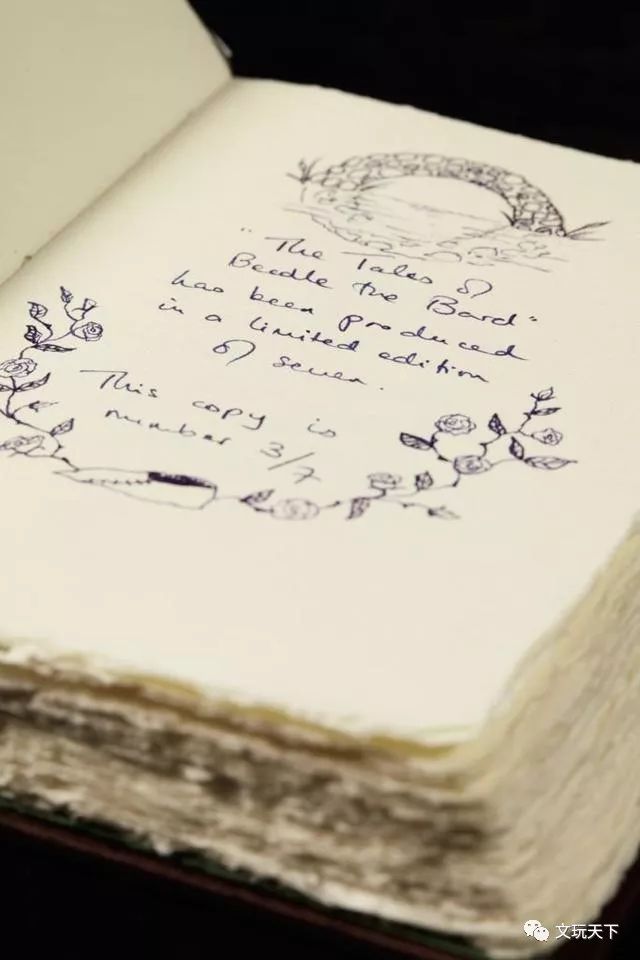 "The Tales of
Beedle the Bard"
has been produced
in a limited edition
of seven.
This copy is
number 3/7
文玩天下